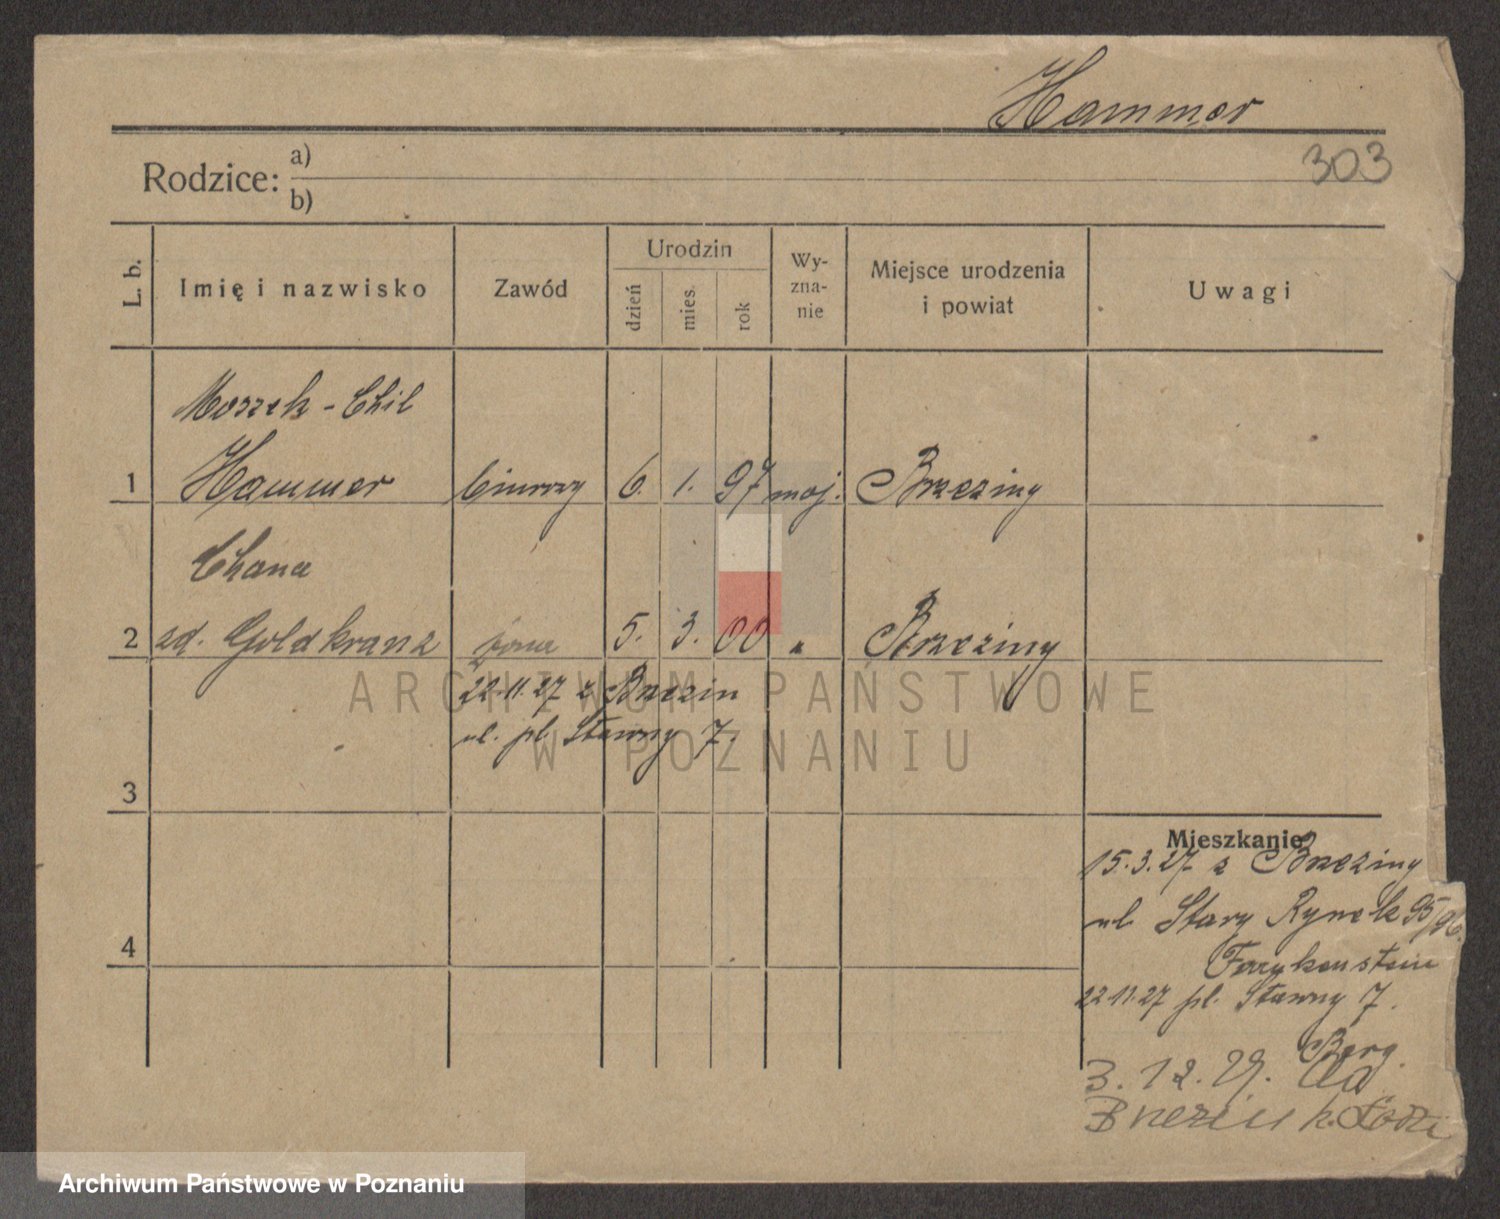 Hammer
303
Rodzice: a)
b)
L. b.
Imię i nazwisko
Zawód
Urodzin
dzień
mies.
rok
Wy-
zna-
nie
Miejsce urodzenia
i powiat
Uwagi
Moszek-Chil
1 Hammer 6. 1. 97 moj. Brzeziny
Chana
2 zd. Goldkranz żona 5. 3. 00 " Brzeziny
22.11.27 z Brzezin
ul. pl. Stawny 7
3
Mieszkanie
15.3.27 z Brzeziny
ul. Stary Rynek 95/96
22.11.27 pl. Stawny 7.
4
Berg.
3.12.29. do
Brzezin k. Łodzi
ARCHIWUM PAŃSTWOWE
W POZNANIU
Archiwum Państwowe w Poznaniu